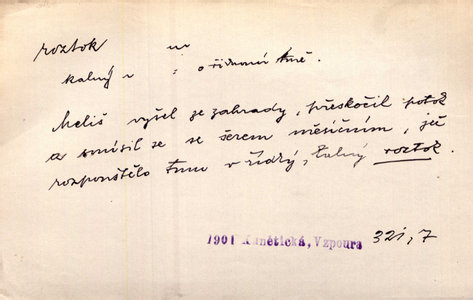 roztok m
kalný r : o řidnoucí tmě.
Meliš vyšel ze zahrady, přeskočil potok
a smísil se se šerem měsíčním, jež
rozpouštělo tmu v řídký, kalný roztok.
1901 Kunětická, Vzpoura 321,7